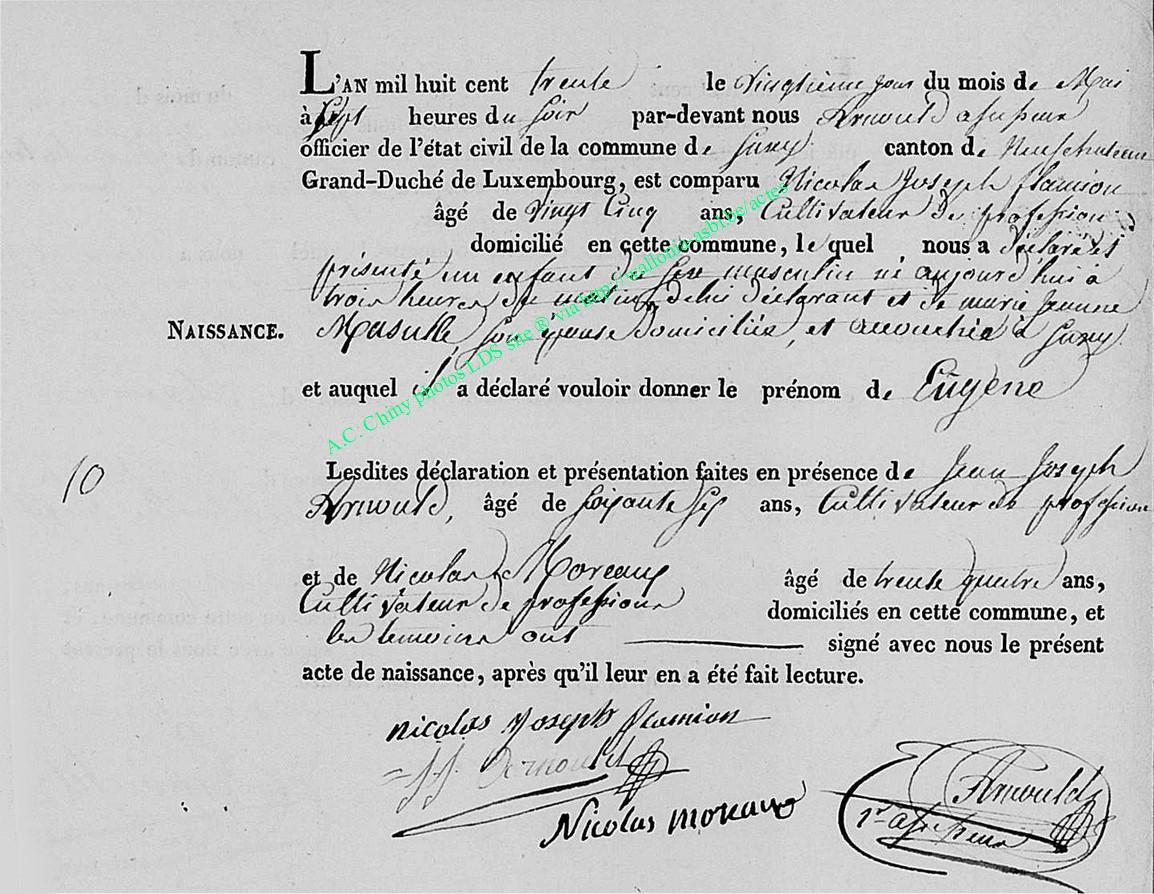 L'AN mil huit cent trente le vingtieme jour du mois de Mai
à Sept heures du Soir par-devant nous Arnould assesseur
officier de l'état civil de la commune de Suxy canton de Neufchateau
Grand-Duché de Luxembourg, est comparu Nicolas Joseph flamion
âgé de Vingt Cinq ans, Cultivateur de profession
domicilié en cette commune, lequel nous a déclaré et
présenté un enfant de sexe masculin né aujourd'hui à
trois heures du matin, de lui déclarant et de marie Jeanne
NAISSANCE. son épouse domiciliée, et accouchée à Suxy
et auquel il a déclaré vouloir donner le prénom de Eugène
10
Lesdites déclaration et présentation faites en présence de Jean Joseph
Arnould, âgé de Soixante Six ans, Cultivateur de profession
et de Nicolas Moreaux âgé de trente quatre ans,
Cultivateur de profession domiciliés en cette commune, et
les temoins ont signé avec nous le présent
acte de naissance, après qu'il leur en a été fait lecture.
nicolas joseph flamion
JJ. Arnould
Nicolas moreaux
Arnould
1r assesseur
A.C. Chiny photos LDS site ® via http://wallonie.asbl.be/actes